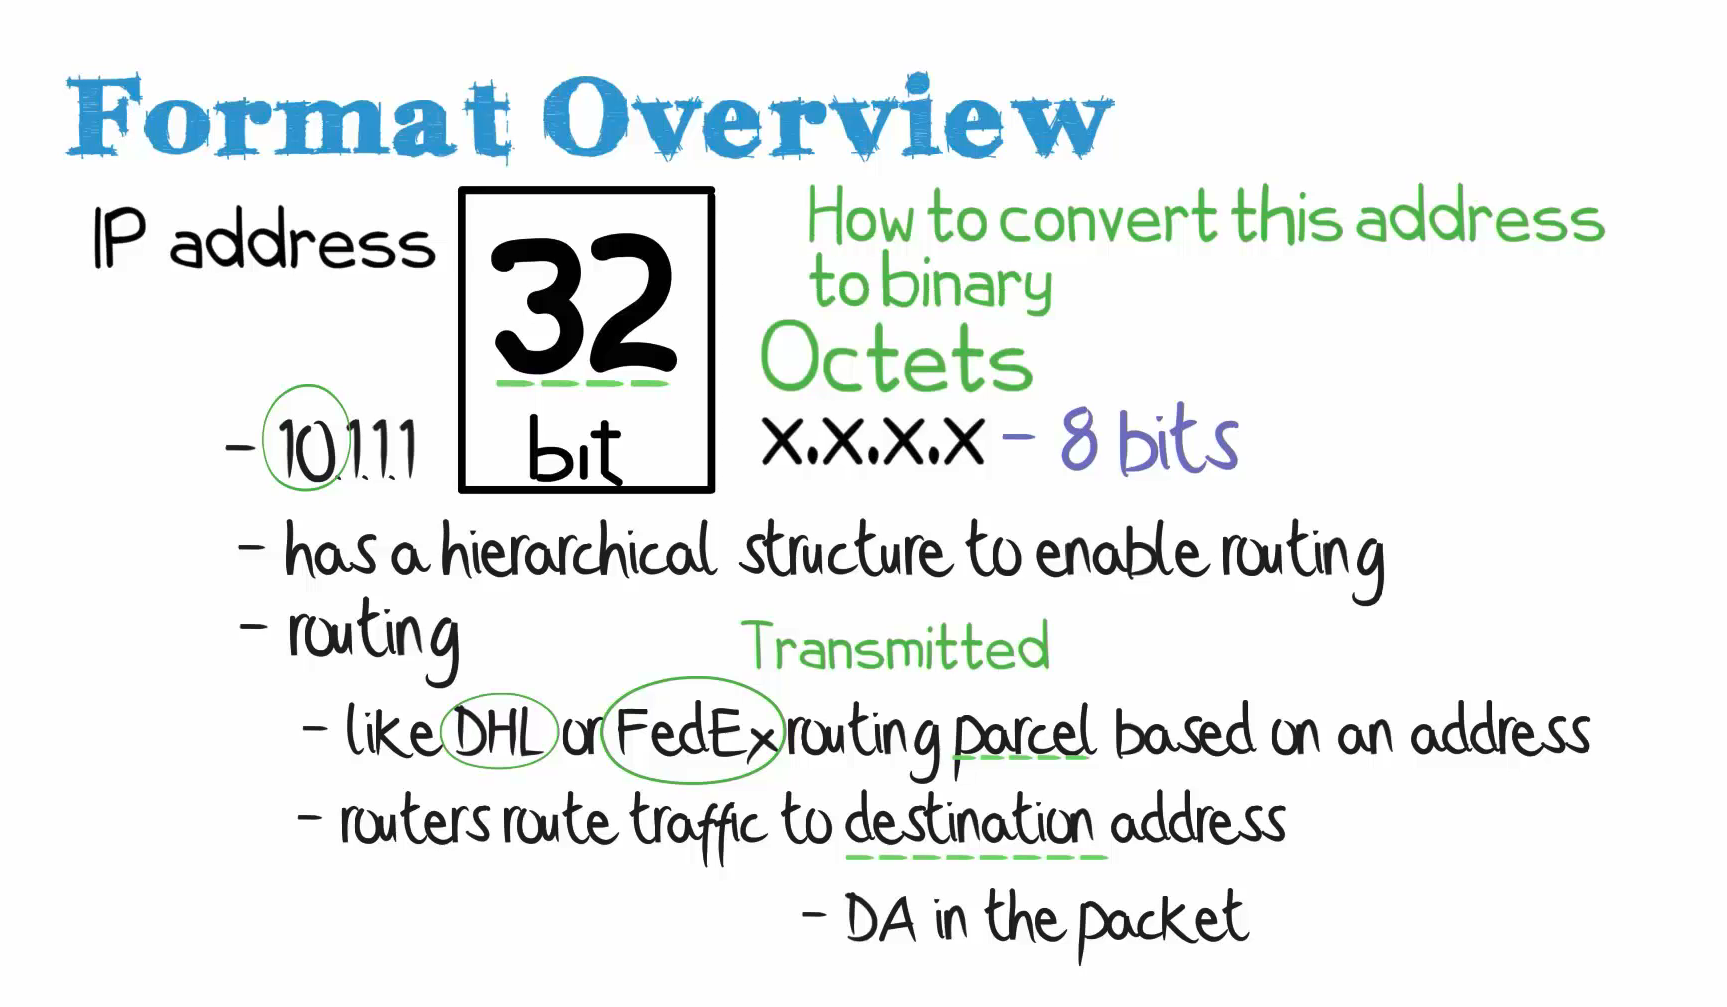 Format Overview
IP address
32
bit
How to convert this address
to binary
Octets
x.x.x.x - 8 bits
- 10.1.1.1
- has a hierarchical structure to enable routing
- routing
Transmitted
- like DHL or FedEx routing parcel based on an address
- routers route traffic to destination address
- DA in the packet